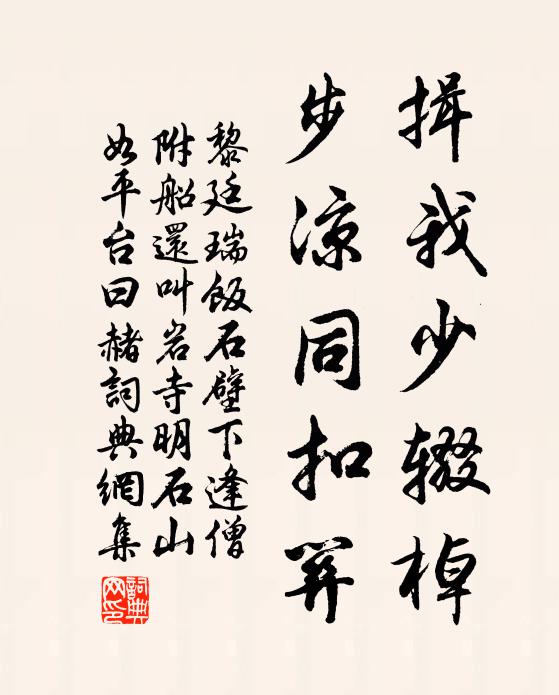 揖我少辍棹
步凉同扣关
黎廷瑞飯石壁下逢僧
附船還叫岩寺明石山
如平台曰赭詞典網集
詞典網印